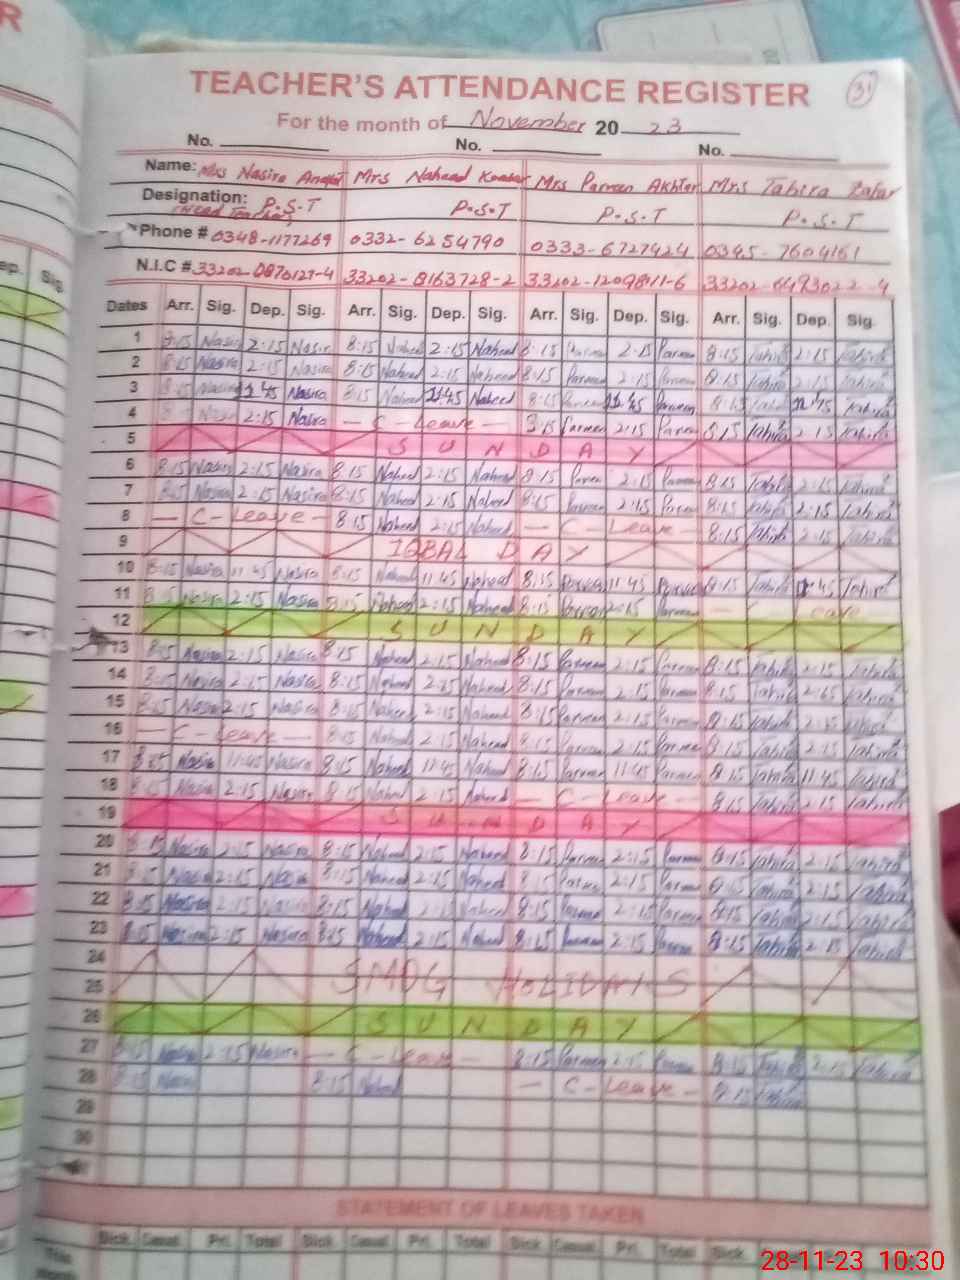 TEACHER'S ATTENDANCE REGISTER
31
For the month of November 2023
No. No. No.
Name: Mrs Nasira Mrs Naheed Mrs Parveen Akhter Mrs Tahira
Designation: P.S.T P.S.T P.S.T P.S.T
Phone # 0348-1177269 0332-6254790 0333-6727424 0345-7604161
N.I.C # 33202-0870127-4 33202-0163728-2 33202-1209811-6 33202-6493022-4
Dates Arr. Sig. Dep. Sig. Arr. Sig. Dep. Sig. Arr. Sig. Dep. Sig. Arr. Sig. Dep. Sig.
1 8:15 Nasira 2:15 Nasira 8:15 Naheed 2:15 Naheed 8:15 Parveen 2:15 Parveen 8:15 Tahira 2:15 Tahira
2 8:15 Nasira 2:15 Nasira 8:15 Naheed 2:15 Naheed 8:15 Parveen 2:15 Parveen 8:15 Tahira 2:15 Tahira
3 8:15 Nasira 11:45 Nasira 8:15 Naheed 11:45 Naheed 8:15 Parveen 11:45 Parveen 8:15 Tahira 11:45 Tahira
4 Nasira 2:15 Nasira - C - Leave - 8:15 Parveen 2:15 Parveen 8:15 Tahira 2:15 Tahira
5 SUNDAY
6 8:15 Nasira 2:15 Nasira 8:15 Naheed 2:15 Naheed 8:15 Parveen 2:15 Parveen 8:15 Tahira 2:15 Tahira
7 8:15 Nasira 2:15 Nasira 8:15 Naheed 2:15 Naheed 8:15 Parveen 2:15 Parveen 8:15 Tahira 2:15 Tahira
8 - C - Leave - 8:15 Naheed 2:15 Naheed - C - Leave - 8:15 Tahira 2:15 Tahira
9 IQBAL DAY
10 8:15 Nasira 11:45 Nasira 8:15 Naheed 11:45 Naheed 8:15 Parveen 11:45 Parveen 8:15 Tahira 11:45 Tahira
11 8:15 Nasira 2:15 Nasira 8:15 Naheed 2:15 Naheed 8:15 Parveen 2:15 Parveen - C - Leave
12 SUNDAY
13 8:15 Nasira 2:15 Nasira 8:15 Naheed 2:15 Naheed 8:15 Parveen 2:15 Parveen 8:15 Tahira 2:15 Tahira
14 8:15 Nasira 2:15 Nasira 8:15 Naheed 2:15 Naheed 8:15 Parveen 2:15 Parveen 8:15 Tahira 2:15 Tahira
15 8:15 Nasira 2:15 Nasira 8:15 Naheed 2:15 Naheed 8:15 Parveen 2:15 Parveen 8:15 Tahira 2:15 Tahira
16 - C - Leave - 8:15 Naheed 2:15 Naheed 8:15 Parveen 2:15 Parveen 8:15 Tahira 2:15 Tahira
17 8:15 Nasira 11:45 Nasira 8:15 Naheed 11:45 Naheed 8:15 Parveen 11:45 Parveen 8:15 Tahira 11:45 Tahira
18 8:15 Nasira 2:15 Nasira 8:15 Naheed 2:15 Naheed - C - Leave - 8:15 Tahira 2:15 Tahira
19 SUNDAY
20 8:15 Nasira 2:15 Nasira 8:15 Naheed 2:15 Naheed 8:15 Parveen 2:15 Parveen 8:15 Tahira 2:15 Tahira
21 8:15 Nasira 2:15 Nasira 8:15 Naheed 2:15 Naheed 8:15 Parveen 2:15 Parveen 8:15 Tahira 2:15 Tahira
22 8:15 Nasira 2:15 Nasira 8:15 Naheed 2:15 Naheed 8:15 Parveen 2:15 Parveen 8:15 Tahira 2:15 Tahira
23 8:15 Nasira 2:15 Nasira 8:15 Naheed 2:15 Naheed 8:15 Parveen 2:15 Parveen 8:15 Tahira 2:15 Tahira
24
SMOG HOLIDAYS
25
26 SUNDAY
27 8:15 Nasira 2:15 Nasira - C - Leave - 8:15 Parveen 2:15 Parveen 8:15 Tahira 2:15 Tahira
28 8:15 Nasira 8:15 Naheed - C - Leave - 8:15 Tahira
29
30
STATEMENT OF LEAVES TAKEN
Sick Casual Pri. Total Sick Casual Pri. Total Sick Casual Pri. Total Sick
This
28-11-23 10:30